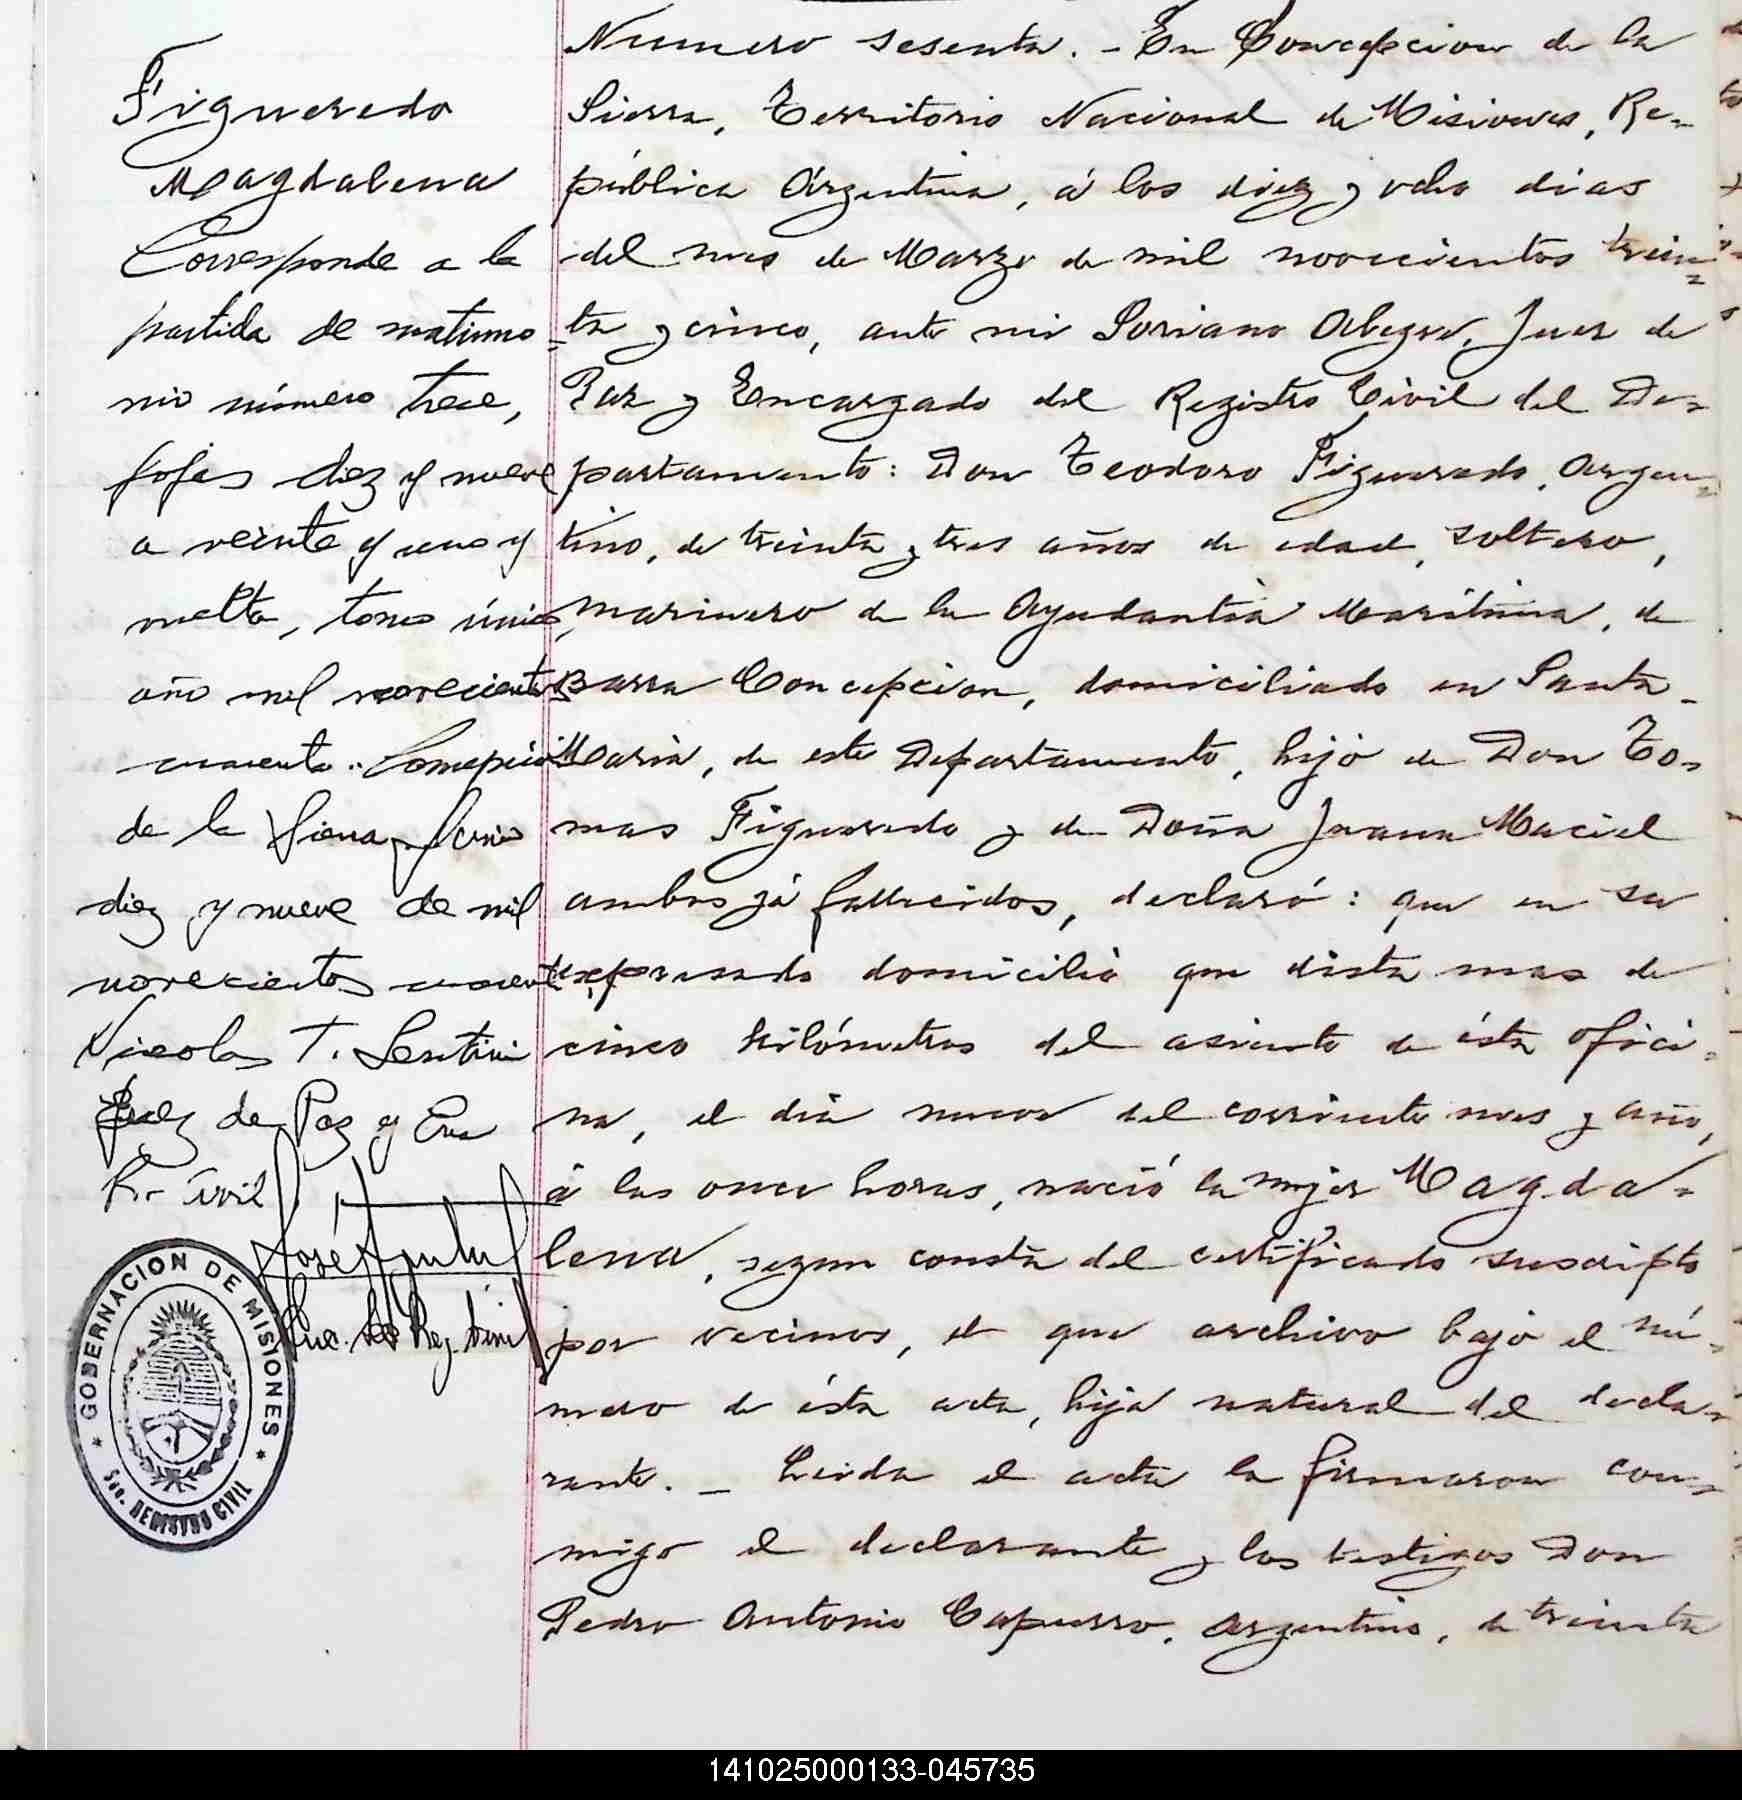 Figueredo
Magdalena
Corresponde a la
partida de matrimo-
nio número trece,
fojas diez y nueve
a veinte y uno y
vuelta, tomo único,
año mil novecientos
cuarenta.. Concepción
de la Sierra, Junio
diez y nueve de mil
novecientos cuarenta
Nicolas T. Sentini
Juez de Paz y Enc
R. Civil
José
Enc. del Reg. Civil
GOBERNACION DE MISIONES
SEC. REGISTRO CIVIL
Numero sesenta. - En Concepcion de la
Sierra, Territorio Nacional de Misiones, Re-
pública Argentina, á los diez y ocho dias
del mes de Marzo de mil novecientos trein-
ta y cinco, ante mi Soriano Alegre, Juez de
Paz y Encargado del Registro Civil del De-
partamento: Don Teodoro Figueredo, argen-
tino, de treinta y tres años de edad, soltero,
marinero de la Ayudantia Maritima, de
Barra Concepcion, domiciliado en Santa-
Maria, de este Departamento, hijo de Don To-
mas Figueredo y de Doña Juana Maciel
ambos yá fallecidos, declaró: que en su
expresado domicilio que dista mas de
cinco kilómetros del asiento de ésta ofici-
na, el dia nueve del corriente mes y año,
á las once horas, nació la mujer Magda-
lena, segun consta del certificado suscripto
por vecinos, el que archivo bajo el nú-
mero de ésta acta, hija natural del decla-
rante. - Leida el acta la firmaron con-
migo el declarante y los testigos Don
Pedro Antonio Capurro, argentino, de treinta
141025000133-045735